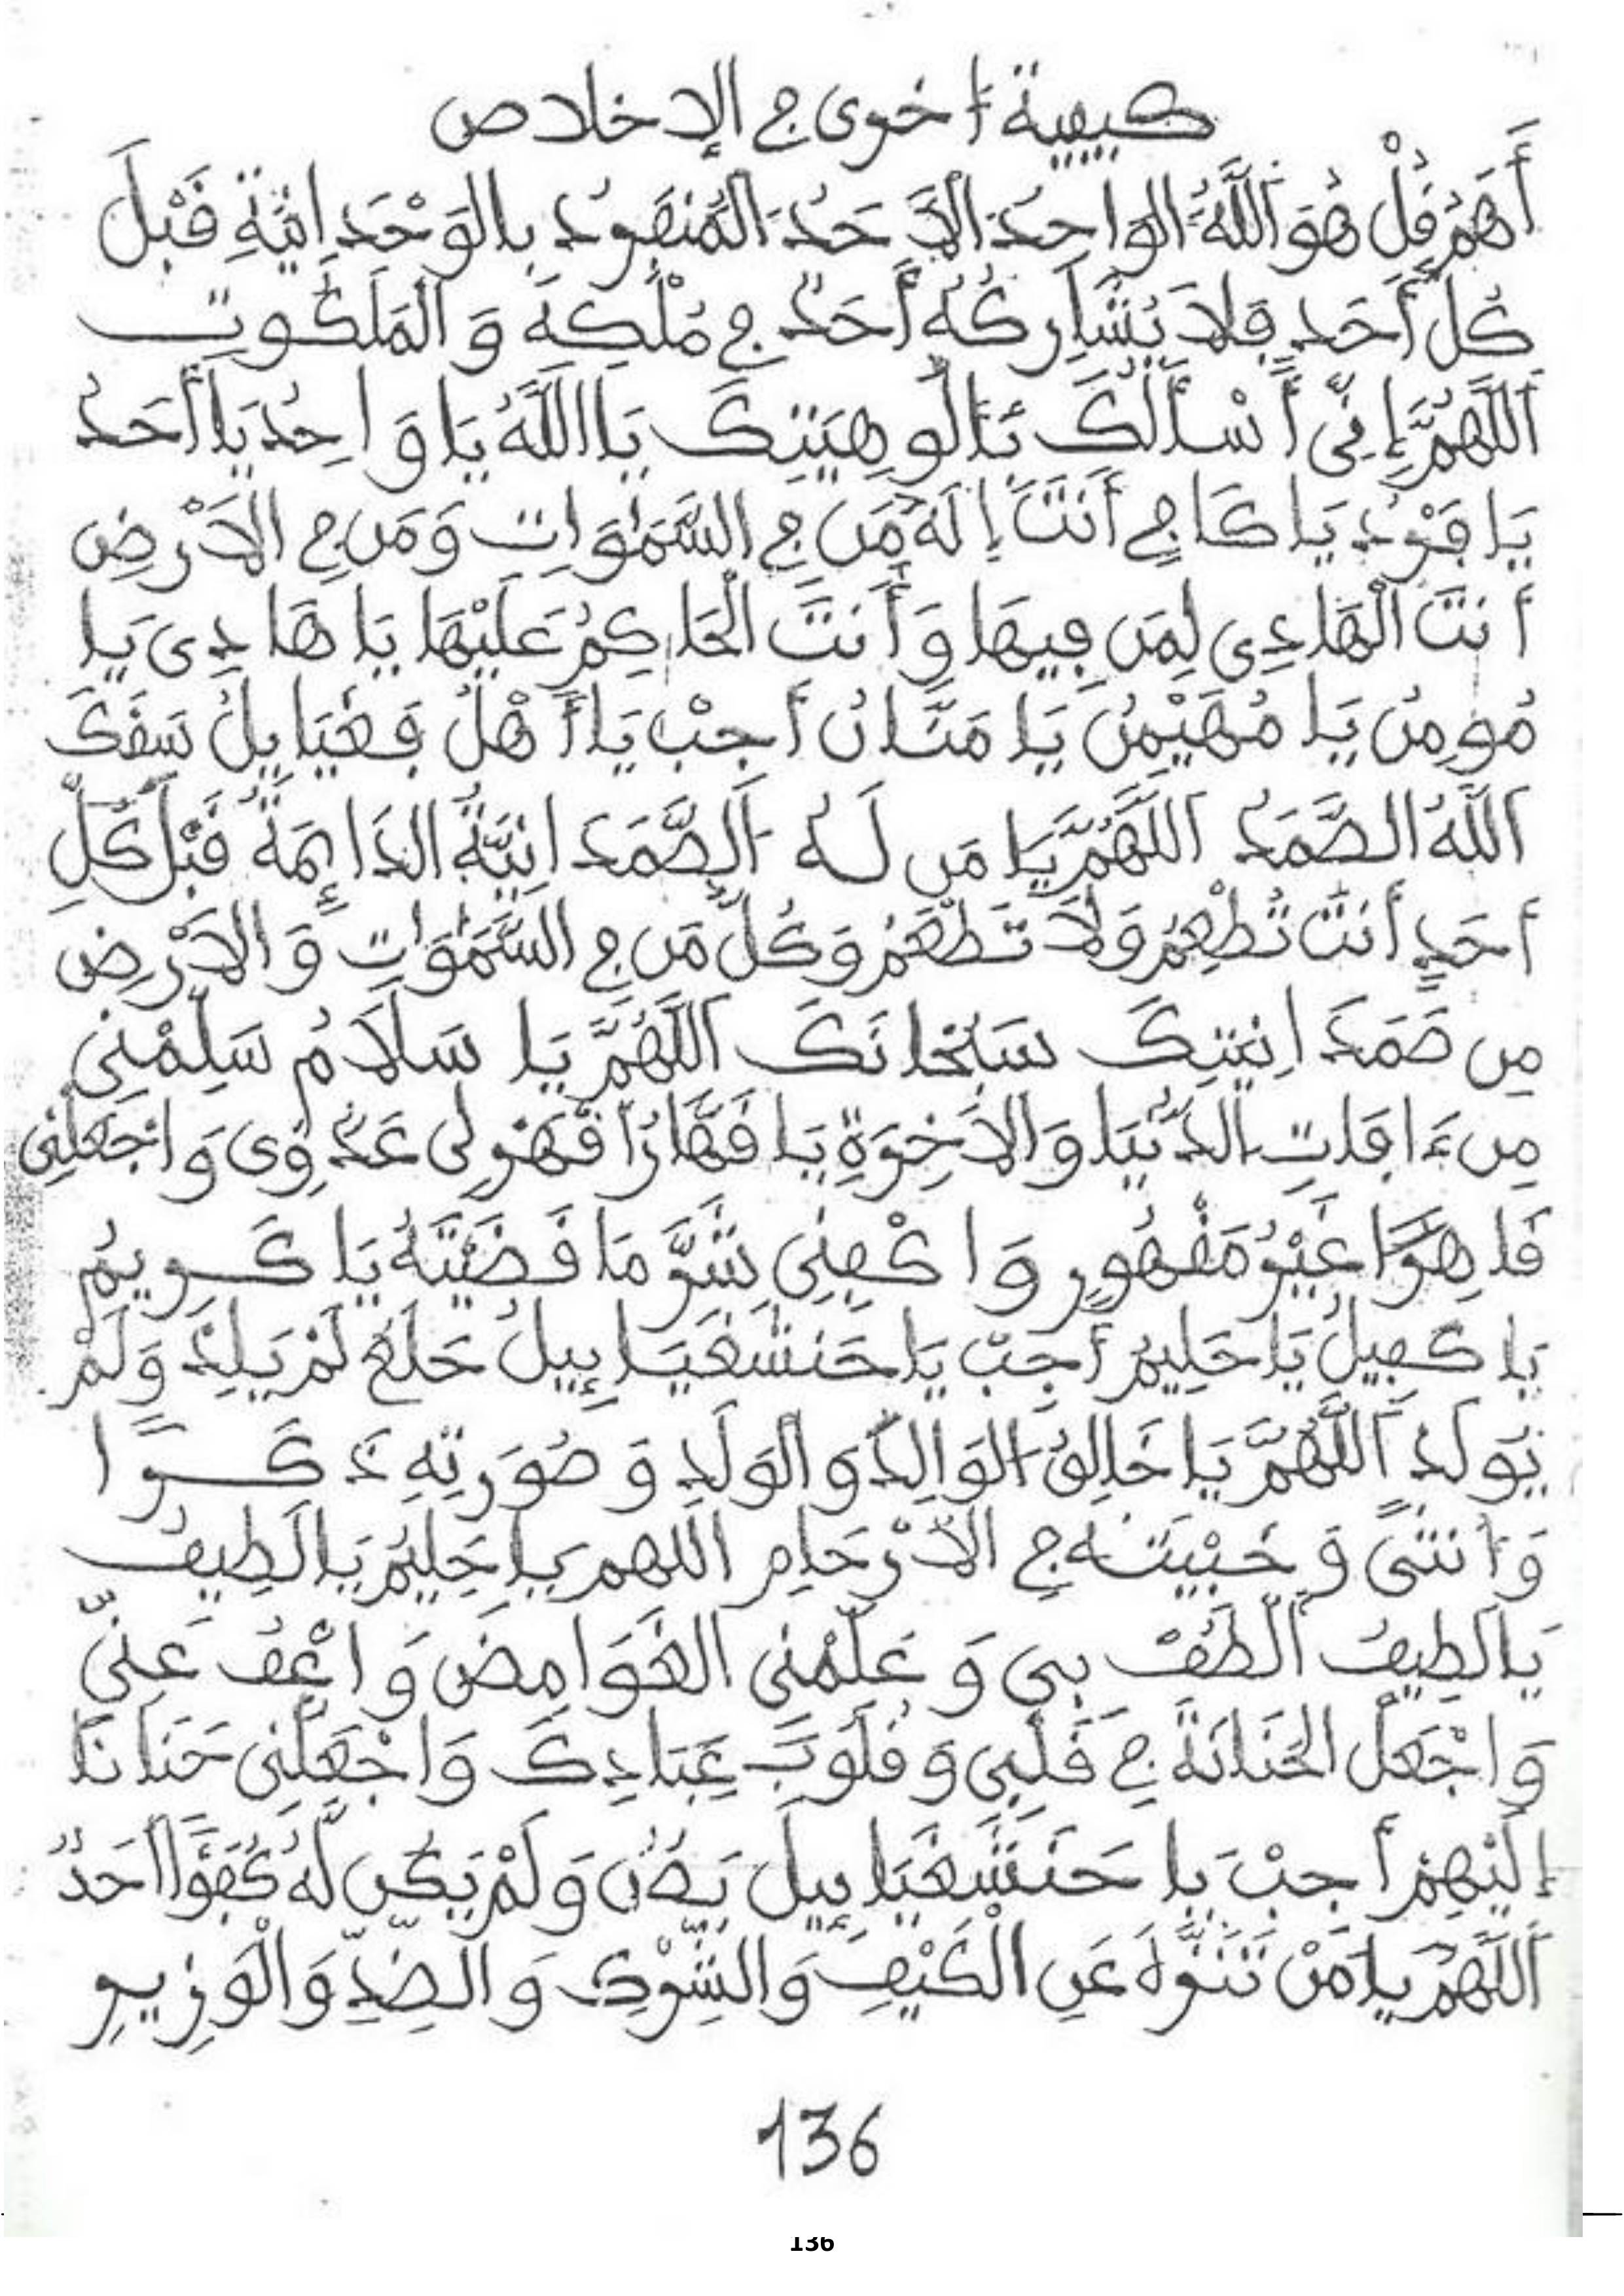 كيفية أخرى في الإخلاص
أَهَمُ قُلْ هُوَ اللَّهُ الوَاحِدُ الأَحَدُ المُنفَرِدُ بِالوَحْدَانِيَّةِ قَبْلَ
كُلِّ أَحَدٍ فَلَا يُشَارِكُهُ أَحَدٌ فِي مُلْكِهِ وَالمَلَكُوتِ
اَللَّهُمَّ إِنِّي أَسْأَلُكَ بِأُلُوهِيَتِكَ يَا اللَّهُ يَا وَاحِدُ يَا أَحَدُ
يَا فَرْدُ يَا كَافِي أَنتَ إِلَهُ مَن فِي السَّمٰوَاتِ وَمَن فِي الأَرْضِ
أَنتَ الْهَادِي لِمَن فِيهَا وَأَنتَ الْحَاكِمُ عَلَيْهَا يَا هَادِي يَا
مُومِنُ يَا مُهَيْمِنُ يَا مَنَّانُ أَجِبْ يَا أَهْلُ سَفَكَ
اللَّهُ الصَّمَدُ اللَّهُمَّ يَا مَن لَهُ الصَّمَدَانِيَّةُ الدَائِمَةُ قَبْلَ كُلِّ
أَحَدٍ أَنتَ تُطْعِمُ وَلَا تَطْعَمُ وَكُلُّ مَن فِي السَّمٰوَاتِ وَالأَرْضِ
مِن صَمَدَانِيَتِكَ سُبْحَانَكَ اللَّهُمَّ يَا سَلَامُ سَلِّمْنِي
مِن ءَافَاتِ الدُّنْيَا وَالأَخِرَةِ يَا قَهَّارُ اقْهَرْ لِي عَدُوِّي وَاجْعَلْنِي
قَاهِرًا غَيْرُ مَقْهُورٍ وَاكْفِنِي شَرَّ مَا قَضَيْتَهُ يَا كَرِيمُ
يَا كَفِيلُ يَا حَلِيمُ أَجِبْ يَا حَنشَغَيَائِيلُ حَلَعٍ لَمْ يَلِدْ وَلَمْ
يُولَدْ اَللَّهُمَّ يَا خَالِقُ الوَالِدِ وَالوَلَدِ وَصُوَرِتِهِ ذَكَرًا
وَأُنثَى وَخَبَيْتَهُ فِي الأَرْحَامِ اللهم يَا حَلِيمُ يَا لَطِيفُ
يَا لَطِيفُ اَلْطُفْ بِي وَعَلِّمْنِي الغَوَامِضَ وَاعْفُ عَنِّي
وَاجْعَلْ الحَنَانَةَ فِي قَلْبِي وَقُلُوبَ عِبَادِكَ وَاجْعَلْنِي حَنَانًا
إِلَيْهِمْ أَجِبْ يَا حَنَشَغَيَائِيلَ وَلَمْ يَكُن لَّهُ كُفُوًا أَحَدٌ
اَللَّهُمَّ يَا مَنْ تَنَزَّهَ عَنِ الْكَيْفِ وَالشِّرْكِ وَالضِّدِّ وَالْوَزِيرِ
136
136